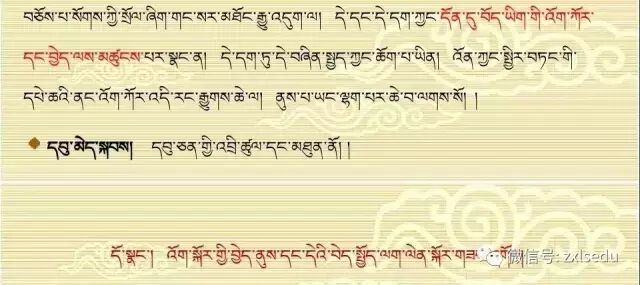 བཅོས་པ་སོགས་ཀྱི་སྲོལ་ཞིག་གང་སར་མཐོང་རྒྱུ་འདུག་ལ། དེ་དང་དེ་དག་ཀྱང་དོན་དུ་བོད་ཡིག་གི་འོག་ཀོར་
དང་བྱེད་ལས་མཚུངས་པར་སྣང་ན། དེ་དག་ཏུ་དེ་བཞིན་སྤྱད་ཀྱང་ཆོག་པ་ཡིན། འོན་ཀྱང་སྤྱིར་བཏང་གི་
དཔེ་ཆའི་ནང་འོག་ཀོར་འདི་རང་རྒྱུགས་ཆེ་ལ། ནུས་པ་ཡང་ལྷག་པར་ཆེ་བ་ལགས་སོ། །
དབུ་མེད་སྐབས། དབུ་ཅན་གྱི་འབྲི་ཚུལ་དང་མཐུན་ནོ། །
དོ་སྣང་། འོག་སྐོར་གྱི་བྱེད་ནུས་དང་དེའི་བེད་སྤྱོད་ལག་ལེན་སྐོར་
微信号: zxlsedu